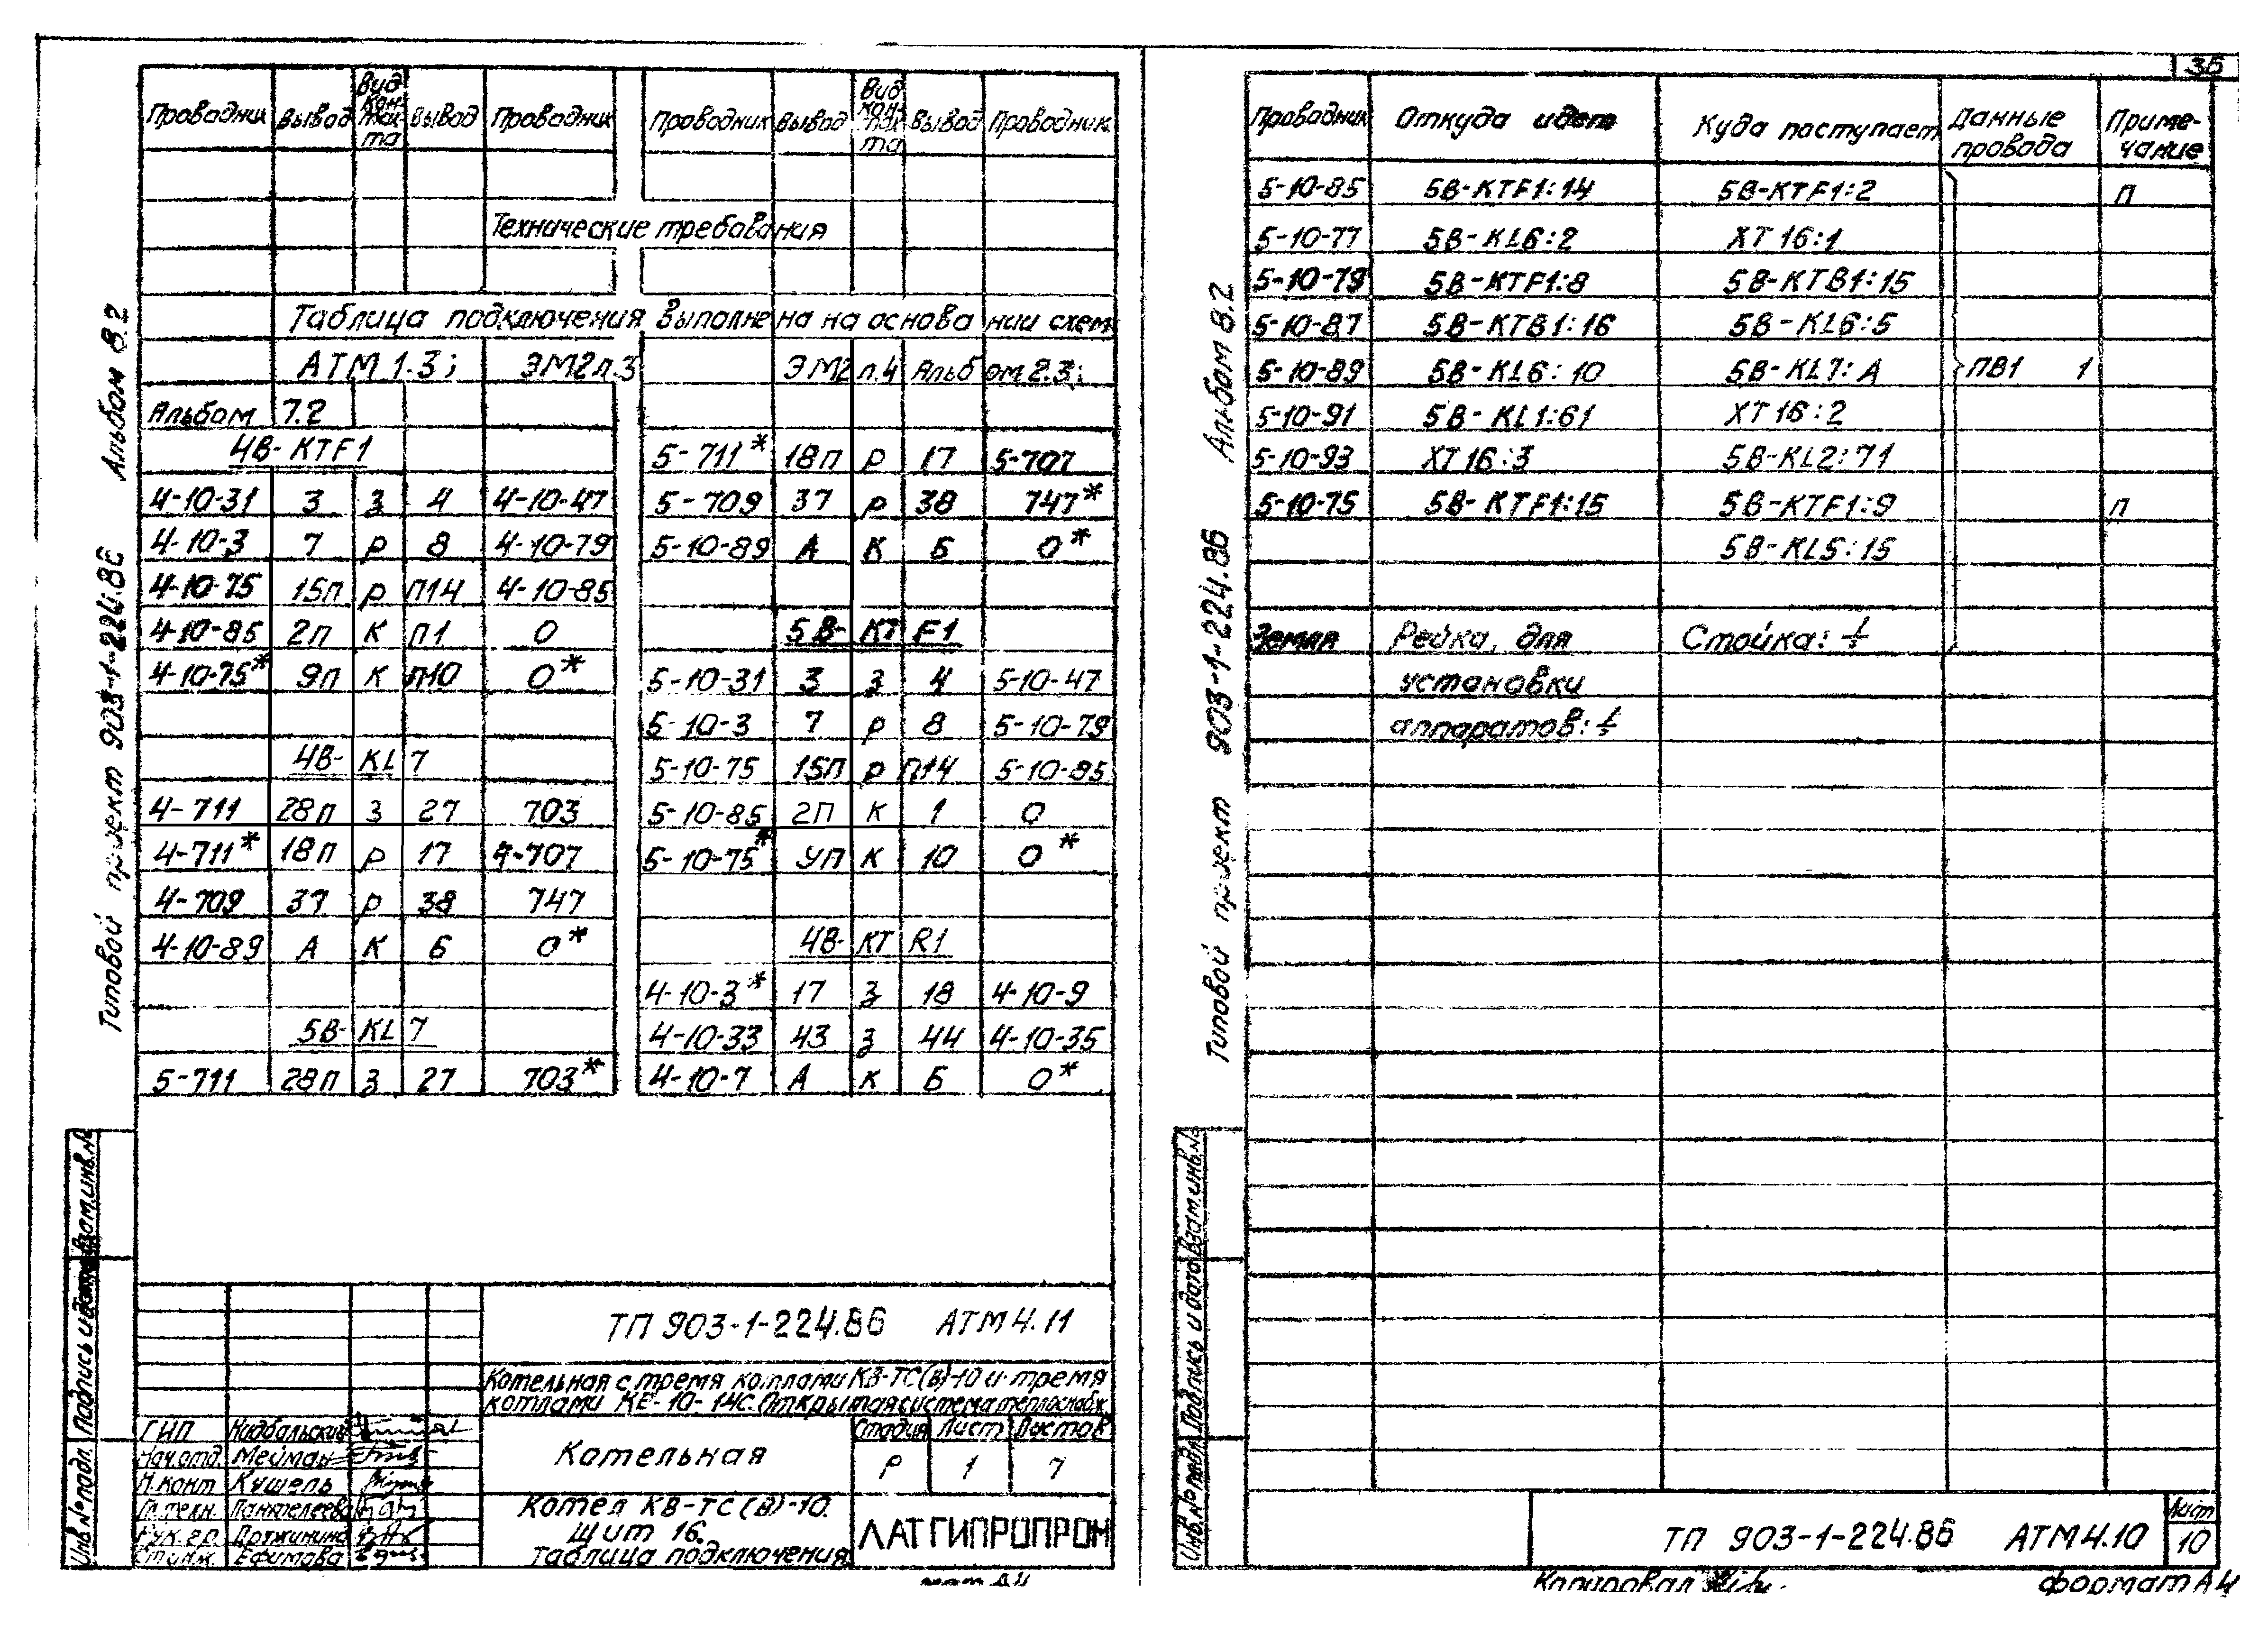 36
Альбом 8.2
Типовой проект 903-1-224.86
Проводник Вывод Вид контакта Вывод Проводник Проводник Вывод Вид контакта Вывод Проводник
Технические требования
Таблица подключения выполнена на основании схем
АТМ 1.3; ЭМ2л.3 ЭМ2 л.4 Альбом 2.3;
Альбом 7.2
4В-KTF1
4-10-31 3 З 4 4-10-47
4-10-3 7 Р 8 4-10-79
4-10-75 15П Р П14 4-10-85
4-10-85 2П К П1 0
4-10-75* 9П К П10 0*
4В-KL7
4-711 28П З 27 703
4-711* 18П Р 17 4-707
4-709 37 Р 38 747
4-10-89 А К Б 0*
5В-KL7
5-711 28П З 27 703*
5-711* 18П Р 17 5-707
5-709 37 Р 38 747*
5-10-89 А К Б 0*
5В-KTF1
5-10-31 3 З 4 5-10-47
5-10-3 7 Р 8 5-10-79
5-10-75 15П Р П14 5-10-85
5-10-85 2П К 1 0
5-10-75* УП К 10 0*
4В-KTR1
4-10-3* 17 З 18 4-10-9
4-10-33 43 З 44 4-10-35
4-10-7 А К Б 0*
ТП 903-1-224.86 АТМ 4.11
Котельная с тремя котлами КВ-ТС(В)-10 и тремя
котлами КЕ-10-14С. Открытая система теплоснабж.
Котельная
Стадия Лист Листов
Р 1 7
Котел КВ-ТС(В)-10.
Щит 16.
Таблица подключения
ЛАТГИПРОПРОМ
ГИП
Нач.отд. Мейман
Н.конт Кушель
Гл.техн. Пантелеева
Рук.гр. Дружинина
Ст.инж. Ефимова
Инв.№ подл. Подпись и дата Взам.инв.№
Альбом 8.2
Типовой проект 903-1-224.86
Проводник Откуда идет Куда поступает Данные провода Примечание
5-10-85 5В-KTF1:14 5В-KTF1:2 П
5-10-77 5В-KL6:2 ХТ16:1
5-10-79 5В-KTF1:8 5В-KTВ1:15
5-10-87 5В-KTВ1:16 5В-KL6:5
5-10-89 5В-KL6:10 5В-KL7:А ПВ1 1
5-10-91 5В-KL1:61 ХТ16:2
5-10-93 ХТ16:3 5В-KL2:71
5-10-75 5В-KTF1:15 5В-KTF1:9 П
5В-KL5:15
Земля Рейка для Стойка: ⏚
установки
аппаратов: ⏚
Инв.№ подл. Подпись и дата Взам.инв.№
ТП 903-1-224.86 АТМ 4.10
Лист
10
Копировал
формат А4